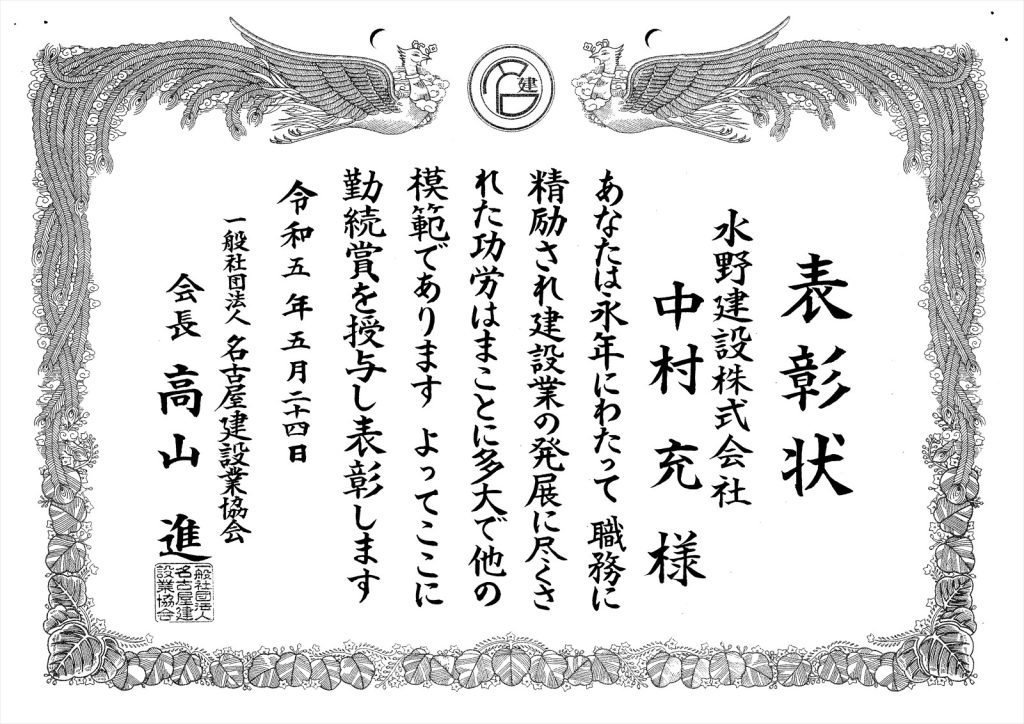 建
表彰状
水野建設株式会社
中村充様
あなたは永年にわたって 職務に
精励され建設業の発展に尽くさ
れた功労はまことに多大で他の
模範であります よってここに
勤続賞を授与し表彰します
令和五年五月二十四日
一般社団法人 名古屋建設業協会
会長 高山 進
一般社団法人
名古屋建
設業協会